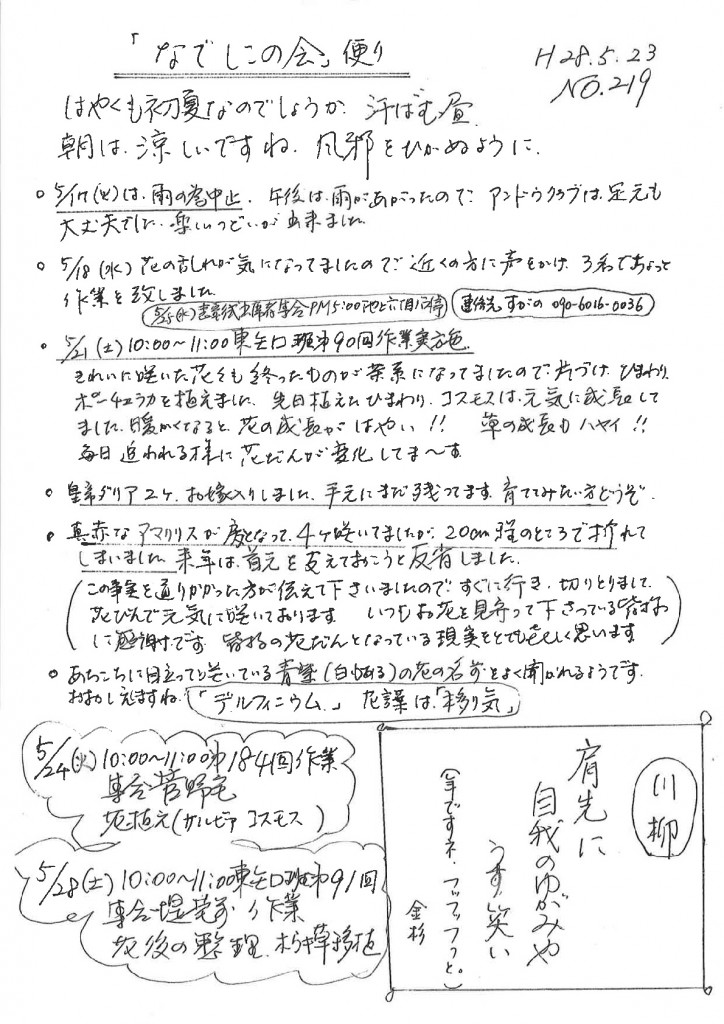 「なでしこの会」便り
H28.5.23
NO.219
はやくも初夏なのでしょうか、汗ばむ昼
朝は、涼しいですね、風邪をひかぬように、
○ 5/17(火)は、雨の為中止、午後は、雨があがったので、アンドウクラブは、足元も
大丈夫でした、楽しいつどいが出来ました
○ 5/18(水)花の乱れが気になってましたので、近くの方に声をかけ、3名でちょっと
作業を致しました
5/25(水) 出席者集合PM5:00
連絡先 すがの 090-6016-0036
○ 5/21(土)10:00〜11:00東 口班第90回作業実施
きれいに咲いた花々も終ったものが茶系になってましたので、片づけ、ひまわり、
ポーチュラカを植えました 先日植えたひまわり、コスモスは、元気に成長して
ました、暖かくなると、花の成長が、はやい!! 草の成長もハヤイ!!
毎日追われる様に花だんが変化してま〜す
○ 皇帝ダリア2ヶ、お嫁入りしました、手元にまだ残ってます、育ててみたい方どうぞ、
○ 真赤なアマリリスが 4ヶ咲いてましたが、20cm程のところで折れて
しまいました、来年は、首元を支えておこうと反省しました、
(この事実を通りかかった方が伝えて下さいましたので、すぐに行き、切りとりまして、
花びんで元気に咲いております いつもお花を見守って下さっている皆さま
に感謝です 皆様の花だんとなっている現実をとても嬉しく思います)
○ あちこちに目立って咲いている青紫(白もある)の花の名前をよく聞かれるようです、
おおしえますね、「デルフィニウム」 花言葉は、「移り気」
5/24(火)10:00〜11:00第184回作業
集合 菅野宅
花植え(サルビア コスモス )
5/28(土)10:00〜11:00東 口班第91回
集合 作業
花後の整理、 移植
川柳
肩先に
自我のゆがみや
うすい笑い
(年ですネ、フッフッフッと。)
金杉